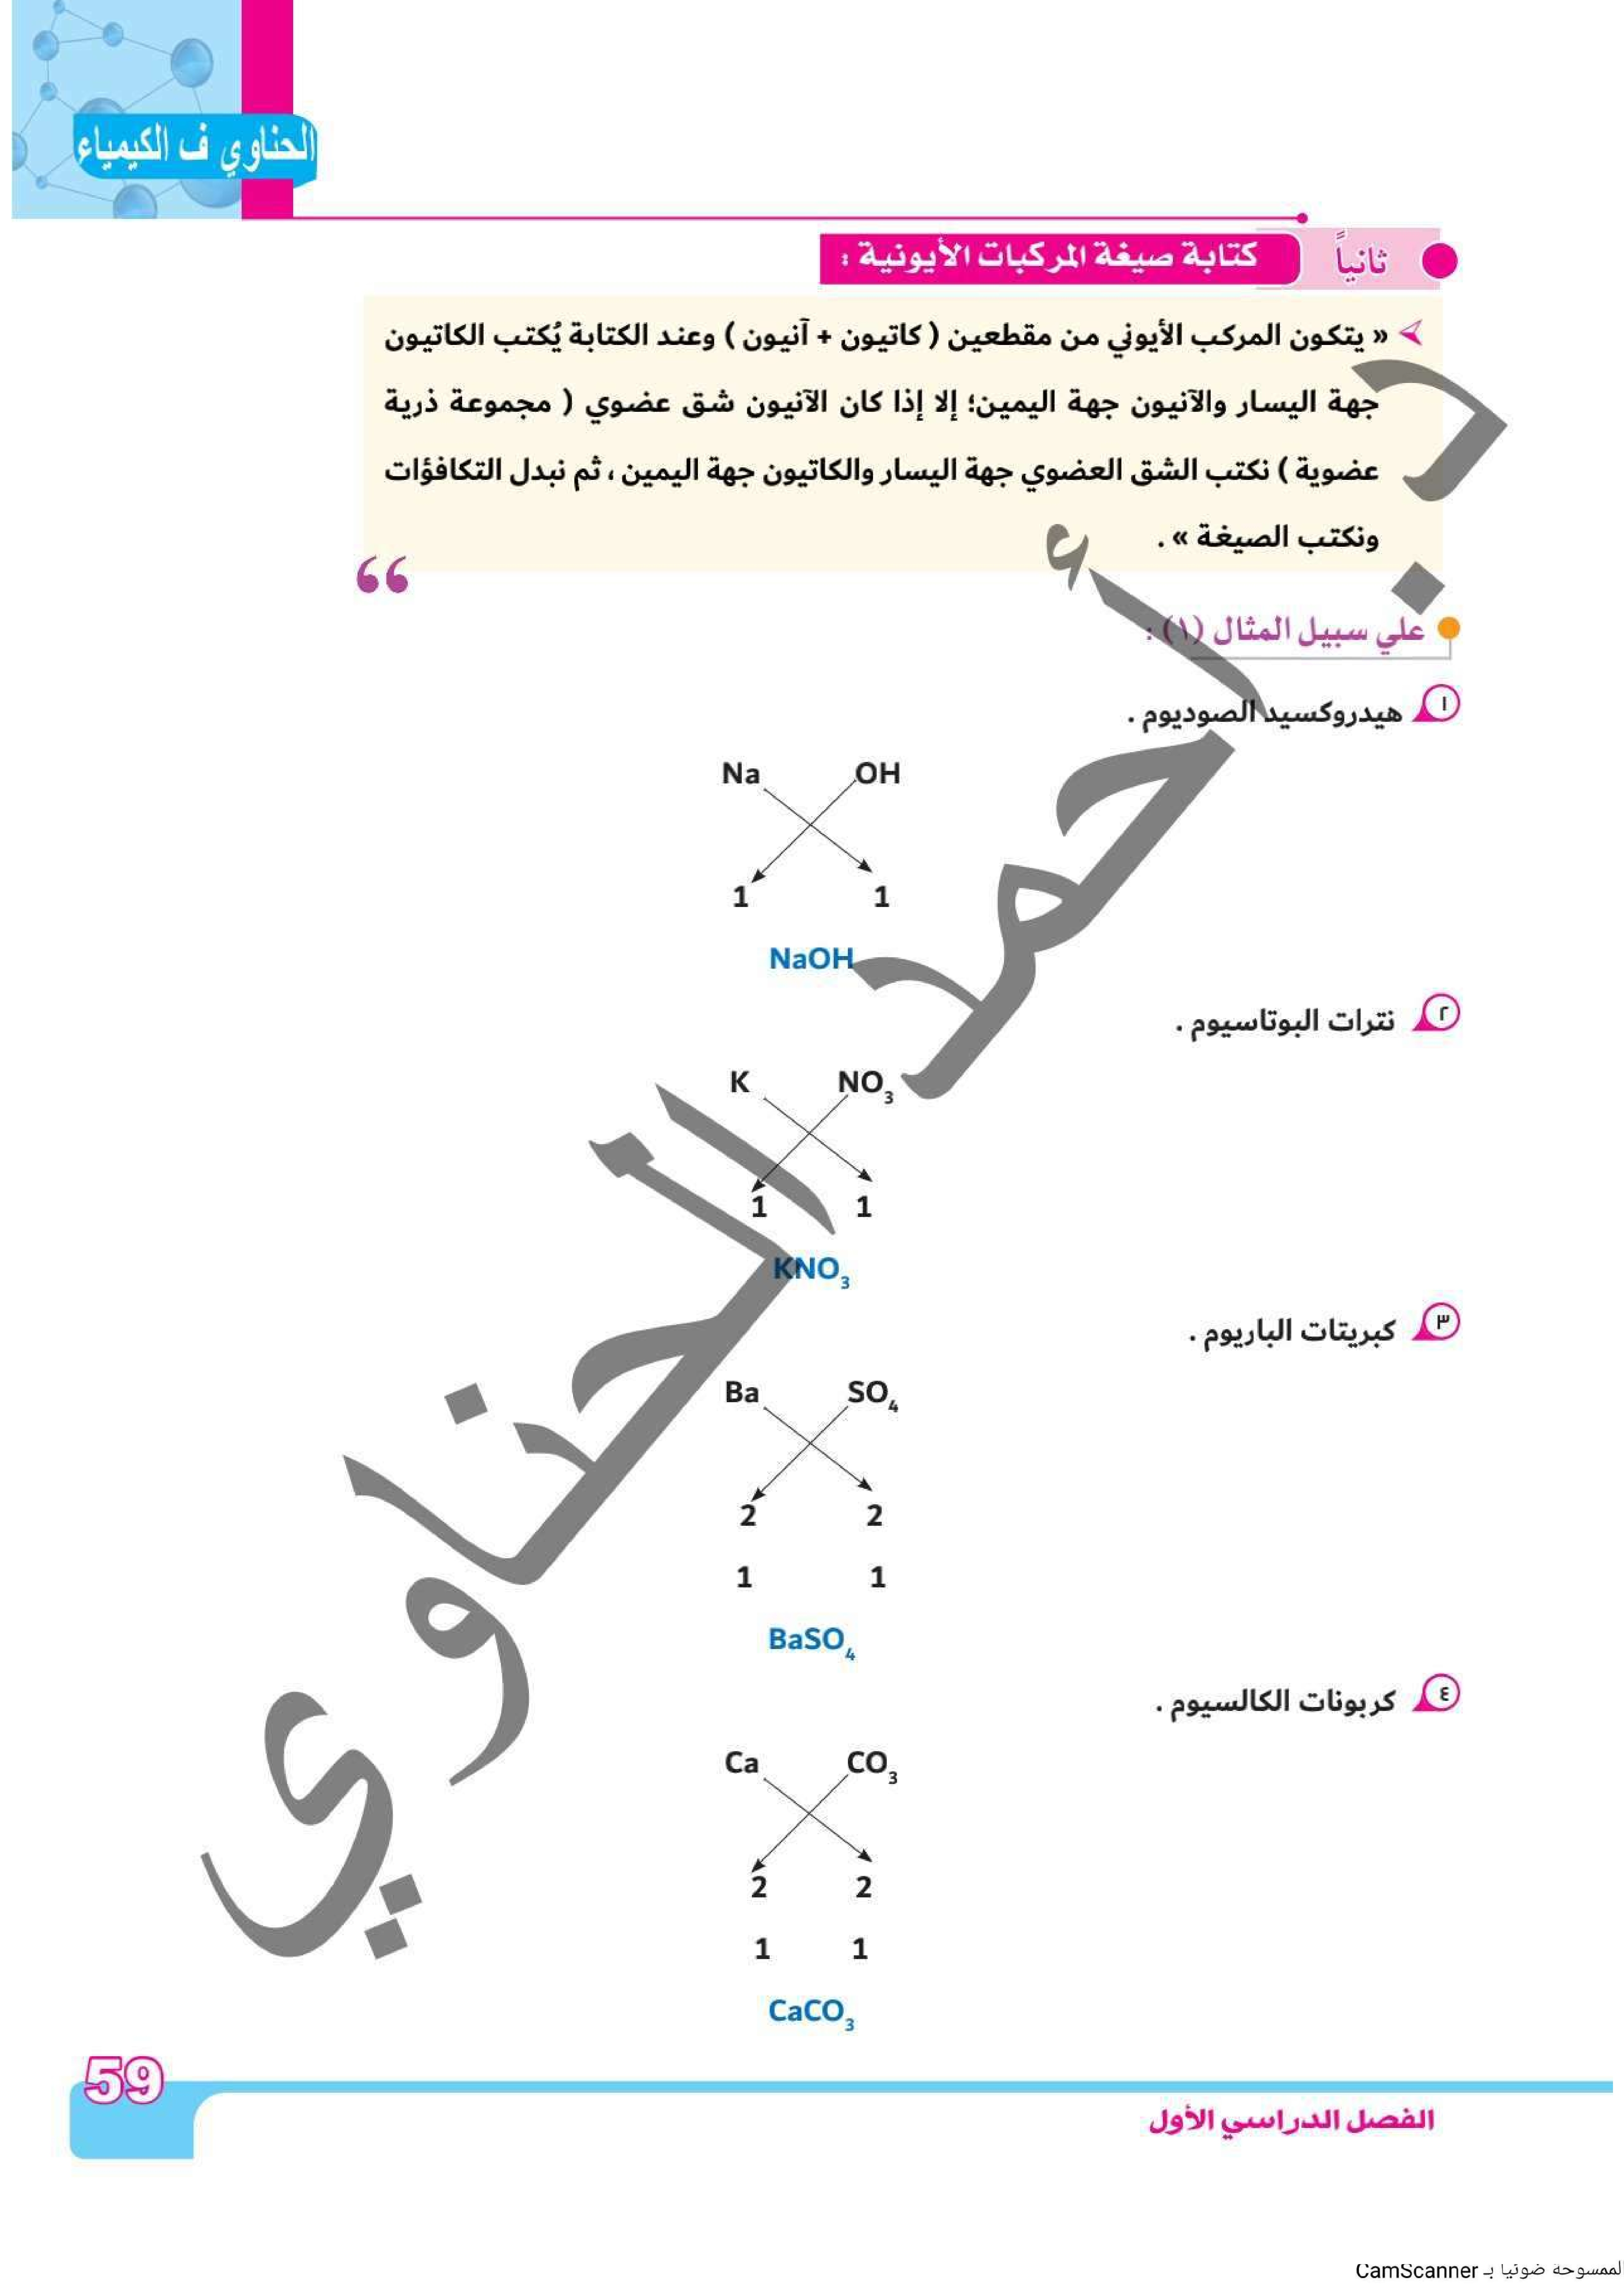 الحناوي ف الكيمياء
ثانياً كتابة صيغة المركبات الأيونية :
« يتكون المركب الأيوني من مقطعين ( كاتيون + آنيون ) وعند الكتابة يُكتب الكاتيون
جهة اليسار والآنيون جهة اليمين؛ إلا إذا كان الآنيون شق عضوي ( مجموعة ذرية
عضوية ) نكتب الشق العضوي جهة اليسار والكاتيون جهة اليمين ، ثم نبدل التكافؤات
ونكتب الصيغة » .
علي سبيل المثال (١) :
١ هيدروكسيد الصوديوم .
Na OH
1 1
NaOH
٢ نترات البوتاسيوم .
K NO₃
1 1
KNO₃
٣ كبريتات الباريوم .
Ba SO₄
2 2
1 1
BaSO₄
٤ كربونات الكالسيوم .
Ca CO₃
2 2
1 1
CaCO₃
59
الفصل الدراسي الأول
أحمد الحناوي
لممسوحة ضوئيا بـ CamScanner